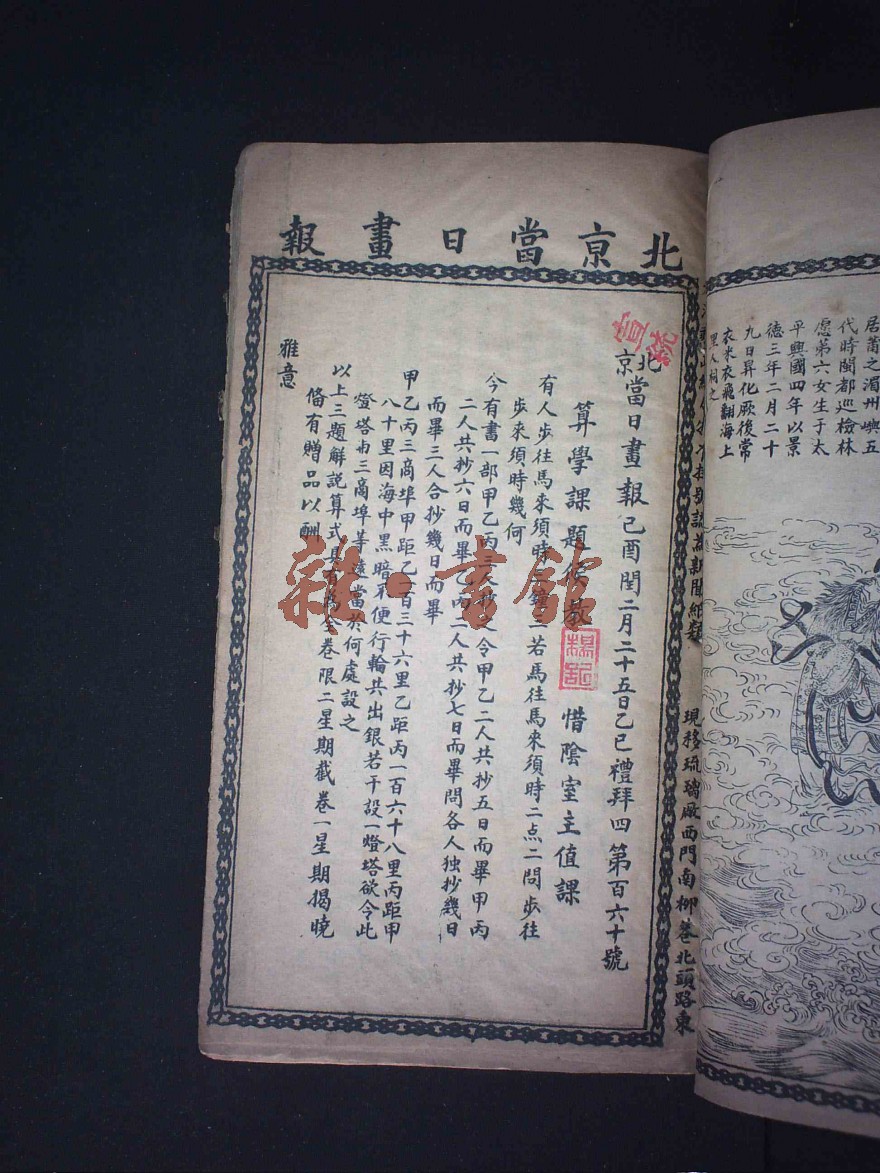 北京當日畫報
宣統
北京當日畫報己酉閏二月二十五日乙巳禮拜四第百六十號
算學課題候教 惜陰室主值課
有人步往馬來須時三鐘三若馬往馬來須時二点二問步往
步來須時幾何
今有書一部甲乙丙三人抄之令甲乙二人共抄五日而畢甲丙
二人共抄六日而畢乙丙二人共抄七日而畢問各人独抄幾日
而畢三人合抄幾日而畢
甲乙丙三商埠甲距乙一百三十六里乙距丙一百六十八里丙距甲
八十里因海中黑暗不便行輪共出銀若干設一燈塔欲令此
燈塔與三商埠等遠當於何處設之
以上三題解說算式具有為全卷限二星期截卷一星期揭曉
俻有贈品以酬
雅意
現移琉璃厰西門南栁巷北頭路東
居莆之湄州嶼五
代時閩都巡檢林
愿第六女生于太
平興國四年以景
德三年二月二十
九日昇化厥後常
衣朱衣飛翻海上
里人祠之
雜·書館